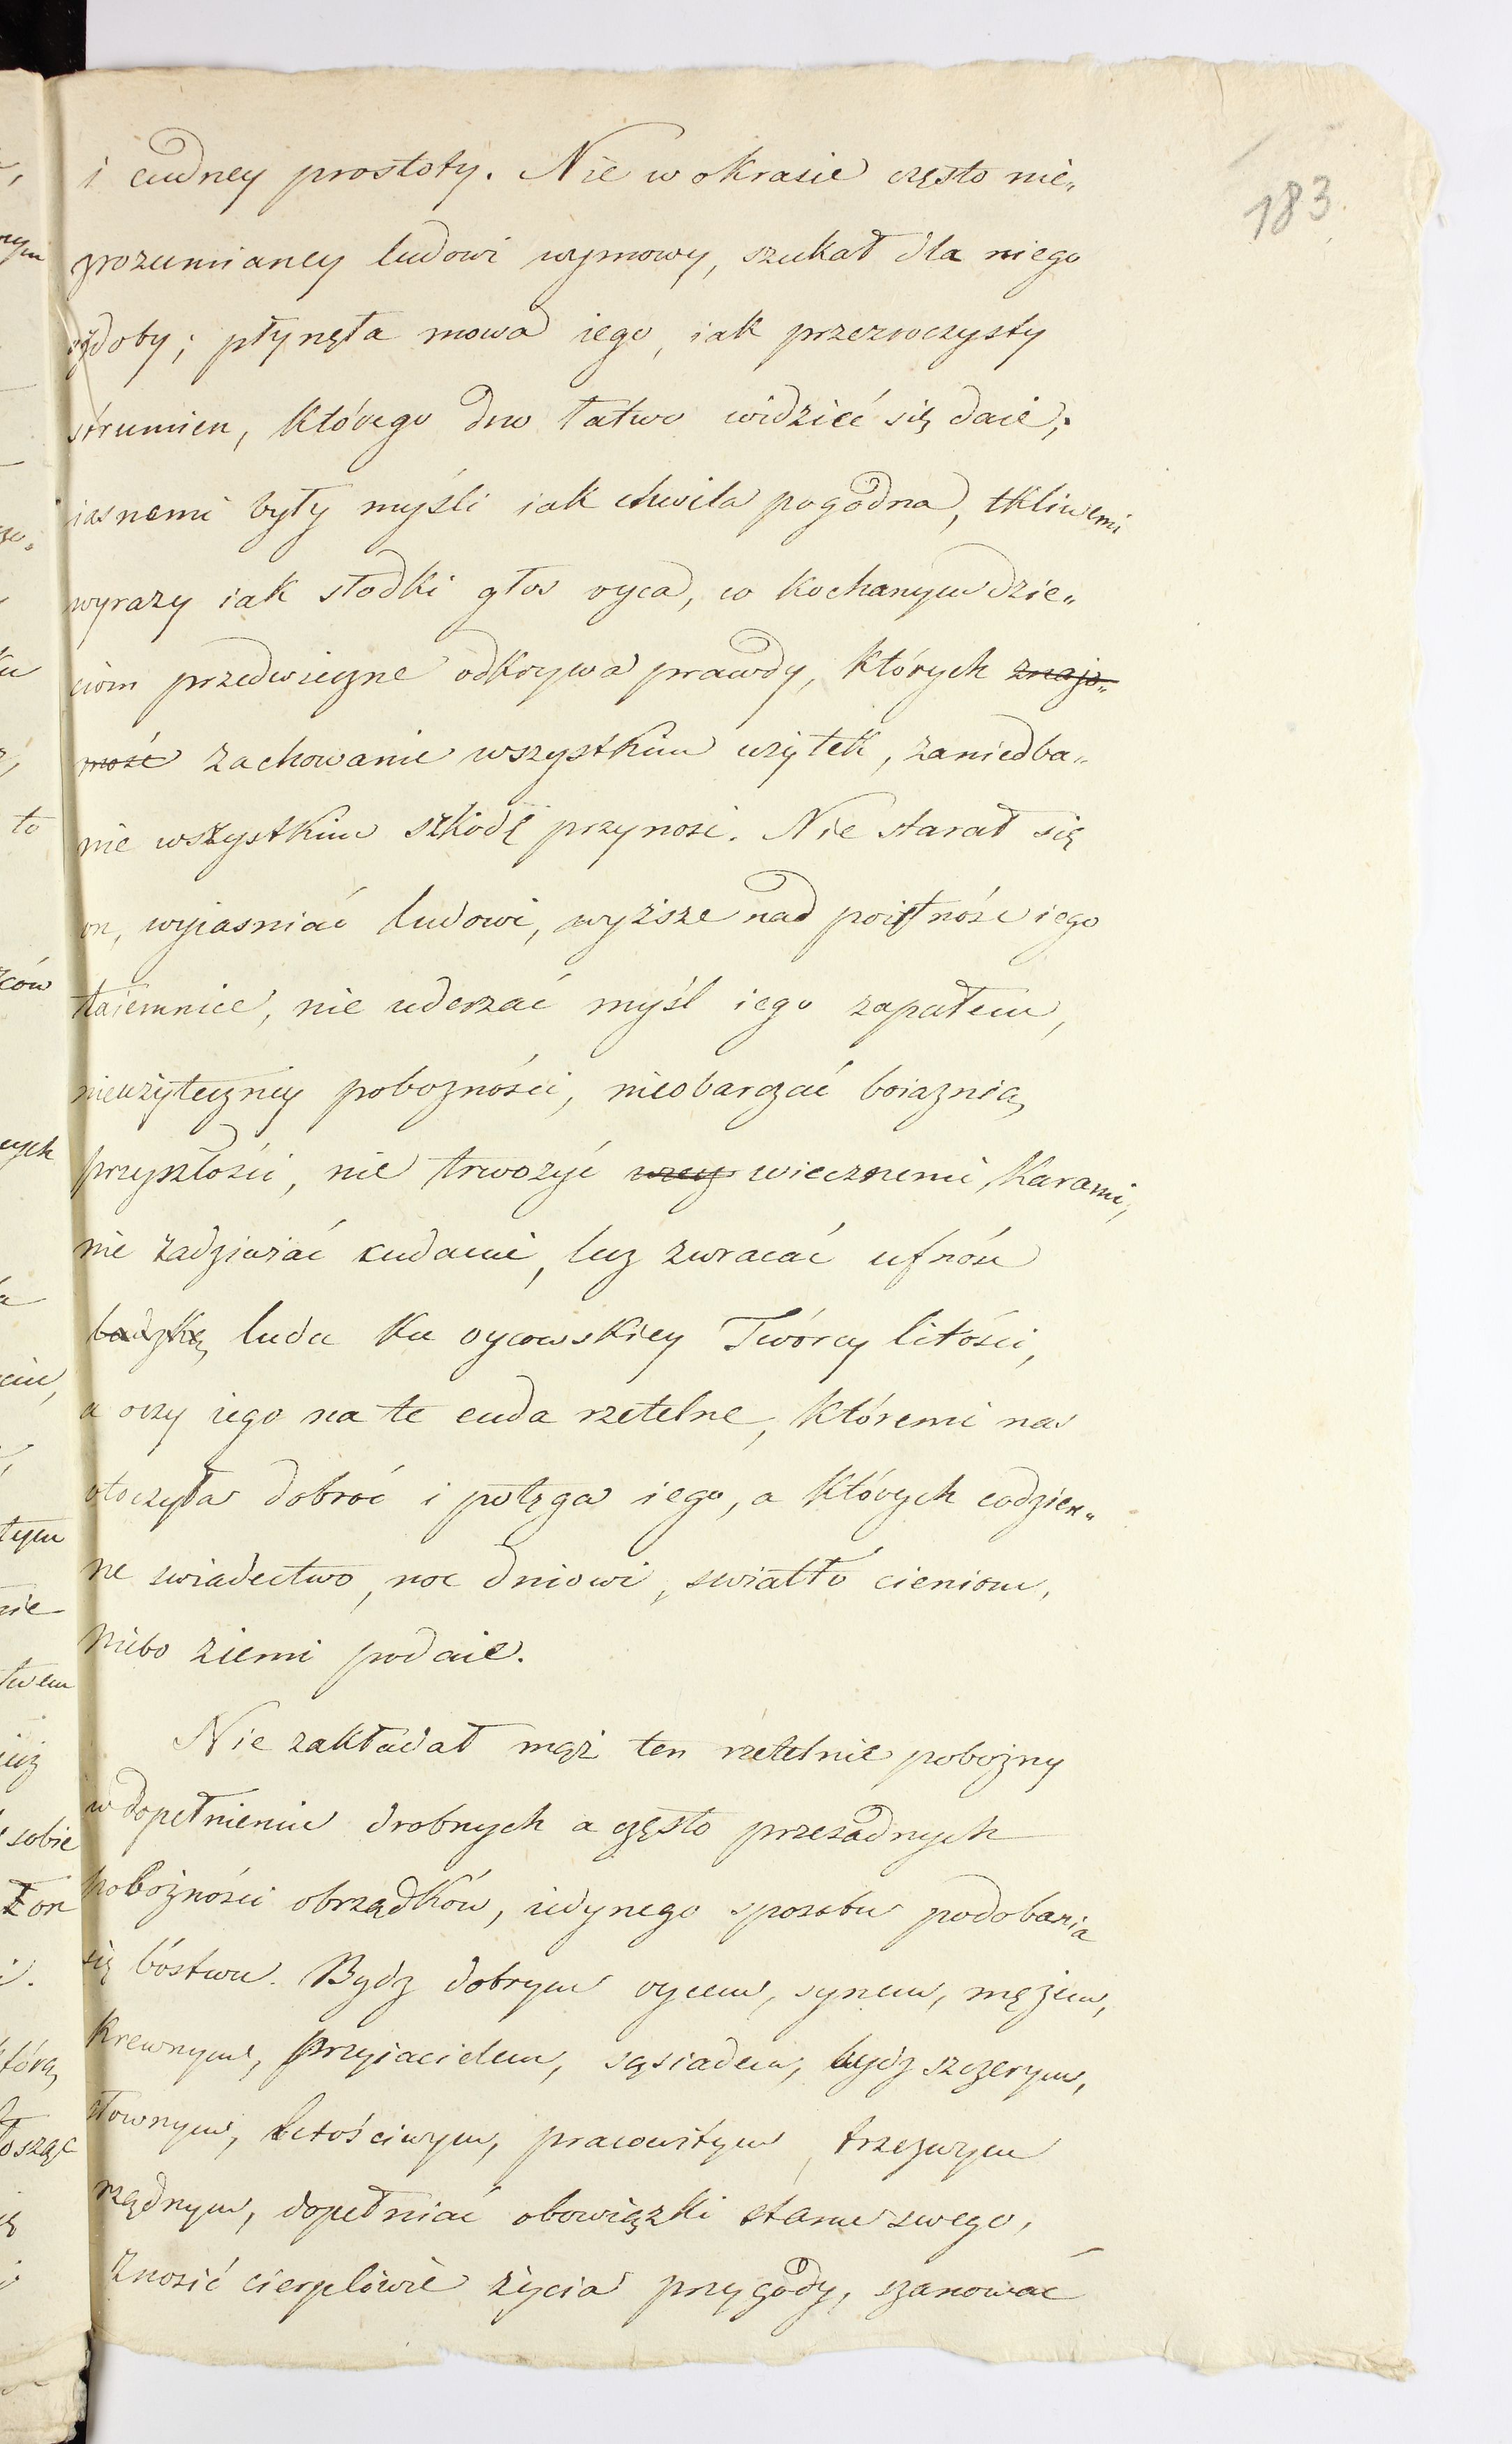 183.
i cudney prostoty. Nie w okrasie często nie„
zrozumianey ludowi wymowy, szukał dla niego
ozdoby; płynęła mowa iego, iak przezroczysty
strumien, którego dno łatwo widzieć się daie;
iasnemi były myśli iak chwila pogodna, tkliwemi
wyrazy iak słodki głos oyca, co kochanym dzie„
ciom przedwieczne odkrywa prawdy, których znajo„
mość zachowanie wszystkim użytek, zaniedba„
nie wszystkim szkodę przynosi. Nie starał się
on, wyiasniać ludowi, wyższe nad poiętność iego
taiemnice, nie uderzać myśl iego zapałem,
nieużyteczney pobożności, nieobarczać boiaznią
przyszłości, nie trwożyć wiecznemi karami,
nie zadziwiać cudami, lecz zwracać ufność
ludzką ludu ku oycowskiey Twórcy litości,
a oczy iego na te cuda rzetelne, któremi nas
otoczyła dobroć i potęga iego, a których codzien„
ne swiadectwo, noc dniowi, swiatło cieniom,
niebo ziemi podaie.
Nie zakładał mąż ten rzetelnie pobożny
w dopełnieniu drobnych a często przesadnych
pobożności obrządków, iedynego sposobu podobania
się bóstwu. Bydz dobrym oycem, synem, mężem,
krewnym, przyiacielem, sąsiadem, bydz szczerym,
słownym, litościwym, pracowitym, trzezwym
rządnym, dopełniać obowiązki stanu swego,
znosić cierpliwie życia przygody, szanować